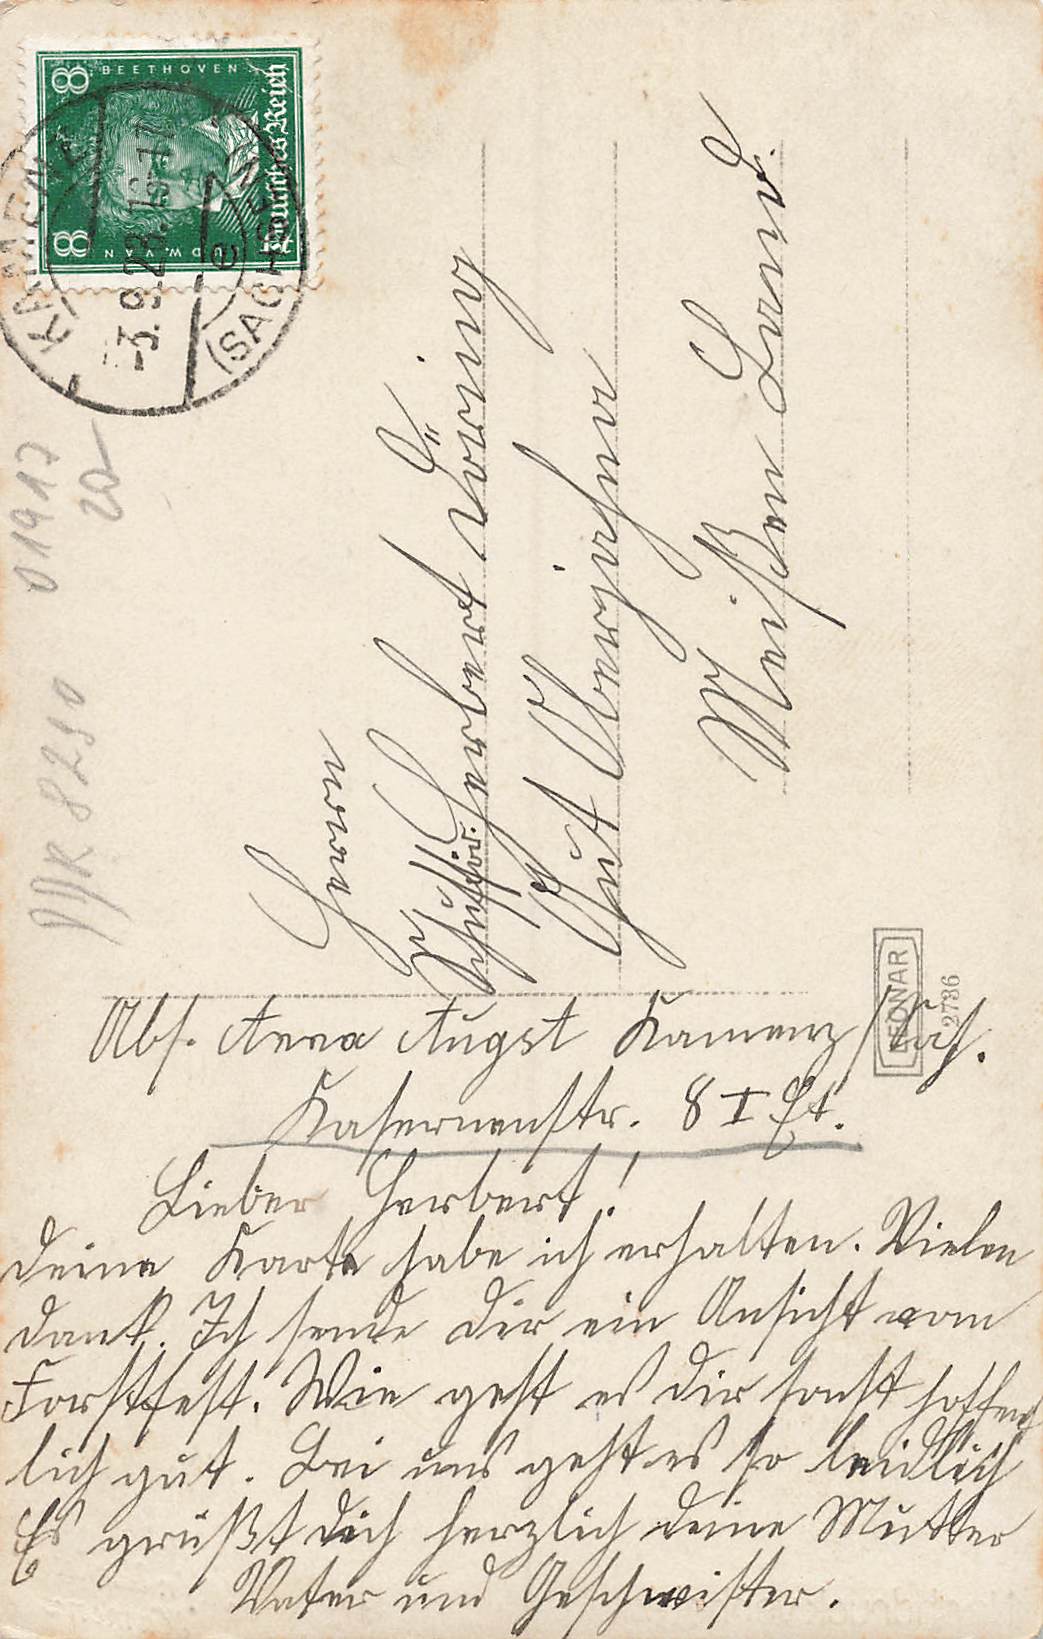 8 BEETHOVEN 8
LUDW. VAN
Deutsches Reich
KAMENZ
-3.9.28.
(SACHSEN)
e
01917
20-
8290
Herrn
Herbert Döring
Gut Oberjahna
Meißen Land
LEONAR
2736
Abs. Anna Augst Kamenz/Sach.
Kasernenstr. 8 I Et.
Lieber Herbert!
deine Karte habe ich erhalten. Vielen
dank. Ich sende dir ein Ansicht vom
Forstfest. Wie geht es dir sonst hoffent
lich gut. Bei uns geht es so leidlich
Es grüßt dich herzlich deine Mutter
Vater und Geschwister.